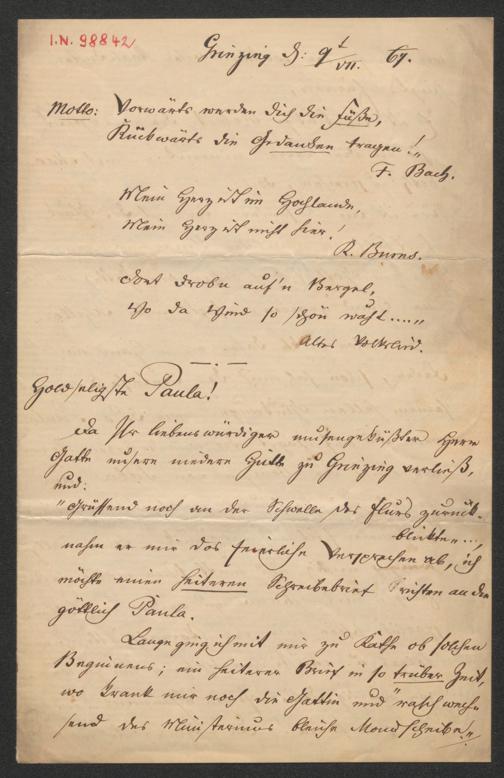 I.N. 98842
Grinzing d: 9t/VII. 69.
Motto: Vorwärts werden dich die Füße,
Rückwärts die Gedanken tragen!"
F. Bach.
Mein Herz ist im Hochlande,
Mein Herz ist nicht hier!
R. Burns.
Dort drobn auf'n Bergel,
Wo da Wind so schön waht....."
Altes Volkslied.
Goldseligste Paula!
Da Ihr liebenswürdiger musengeküßter Herr
Gatte unsere niedere Hütte zu Grinzing verließ,
und:
"Grüssend noch an der Schwelle des Flurs zurück-
blickte"...,
nahm er mir das feierliche Versprechen ab, ich
möchte einen heiteren Schreibebrief richten an die
göttlich Paula.
Lange ging ich mit mir zu Rathe ob solchen
Beginnens; ein heiterer Brief in so trüber Zeit,
wo krank mir noch die Gattin und "rasch wech-
selnd des Ministeriums bleiche Mondscheibe!"